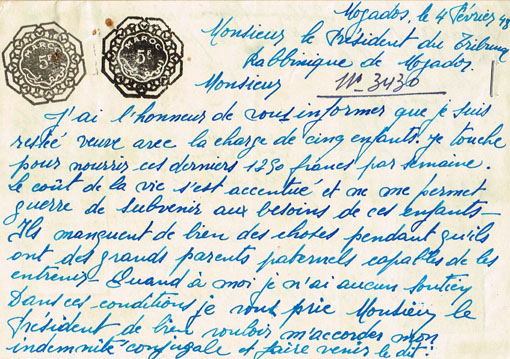 Mogador, le 4 Février 48
Monsieur le Président du Tribunal
Rabbinique de Mogador.
Monsieur
N° 3430
MAROC
MAROC
J'ai l'honneur de vous informer que je suis
restée veuve avec la charge de cinq enfants. Je touche
pour nourrir ces derniers 1250 francs par semaine.
Le coût de la vie s'est accentué et ne me permet
guerre de subvenir aux besoins de ces enfants-
Ils manquent de bien des choses pendant qu'ils
ont des grands parents paternels capables de les
entrenir - Quand à moi je n'ai aucun soutien
Dans ces conditions je vous prie Monsieur le
Président de bien vouloir m'accorder mon
indemnité conjugale et faire venir le dit